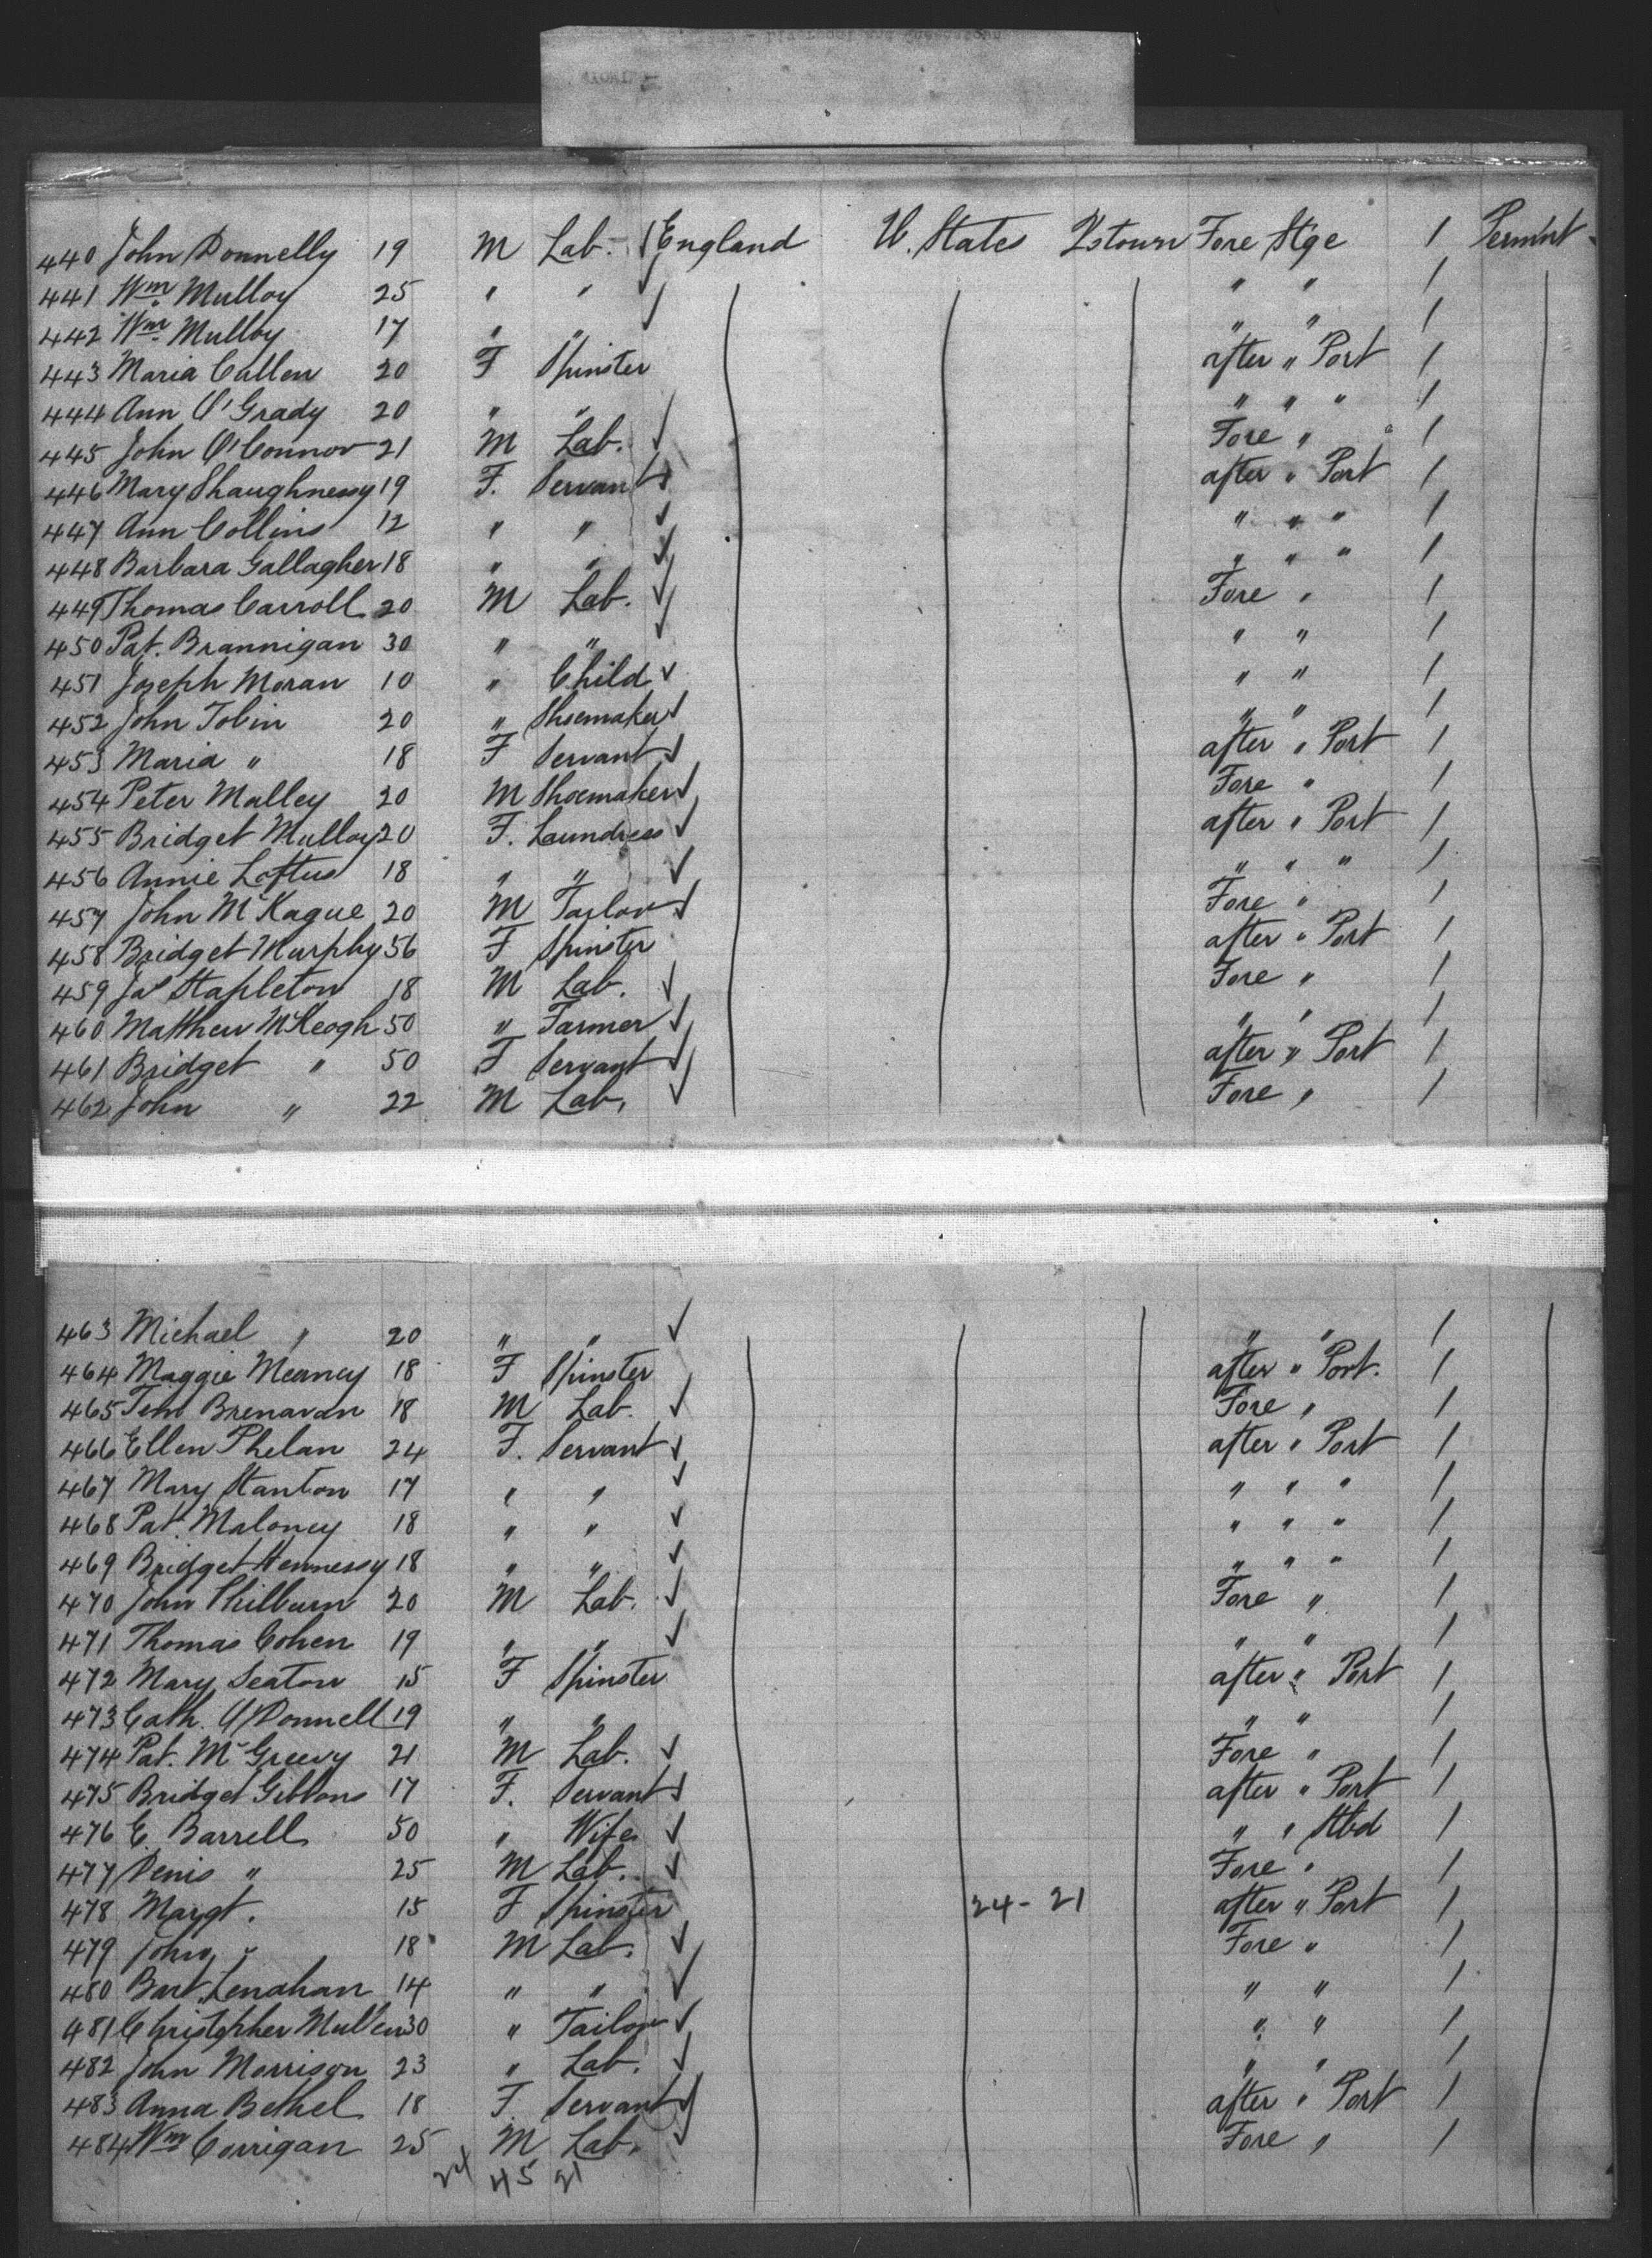 440 John Donnelly 19 M Lab. England U. States Qstown Fore Stge 1 Permnt
441 Wm Mulloy 25 " " " " 1
442 Wm Mulloy 17 " " " " 1
443 Maria Cullen 20 F Spinster after " Port 1
444 Ann O'Grady 20 " " " " " 1
445 John O'Connor 21 M Lab. Fore " 1
446 Mary Shaughnessy 19 F. Servant after " Port 1
447 Ann Collins 12 " " " " " 1
448 Barbara Gallagher 18 " " " " " 1
449 Thomas Carroll 20 M Lab. Fore " 1
450 Pat. Brannigan 30 " " " " 1
451 Joseph Moran 10 " Child " " 1
452 John Tobin 20 " Shoemaker " " 1
453 Maria " 18 F Servant after " Port 1
454 Peter Malley 20 M Shoemaker Fore " 1
455 Bridget Mulloy 20 F. Laundress after " Port 1
456 Annie Loftus 18 " " " " " 1
457 John McKague 20 M Taylor Fore " 1
458 Bridget Murphy 56 F Spinster after " Port 1
459 Jas Stapleton 18 M Lab. Fore " 1
460 Matthew McKeogh 50 " Farmer " " 1
461 Bridget " 50 F Servant after " Port 1
462 John " 22 M Lab. Fore " 1
463 Michael " 20 " " " " 1
464 Maggie Meaney 18 F Spinster after " Port. 1
465 Tim Brenavan 18 M Lab. Fore " 1
466 Ellen Phelan 24 F. Servant after " Port 1
467 Mary Stanton 17 " " " " " 1
468 Pat. Maloney 18 " " " " " 1
469 Bridget Hennessy 18 " " " " " 1
470 John Philburn 20 M Lab. Fore " 1
471 Thomas Cohen 19 " " " " 1
472 Mary Seaton 15 F Spinster after " Port 1
473 Cath. O'Donnell 19 " " " " 1
474 Pat. McGreevy 21 M Lab. Fore " 1
475 Bridget Gibbons 17 F. Servant after " Port 1
476 E. Barrell 50 " Wife " " Stbd 1
477 Denis " 25 M Lab. Fore " 1
478 Margt. 15 F Spinster 24 - 21 after " Port 1
479 John " 18 M Lab. Fore " 1
480 Bart Lenahan 14 " " " " 1
481 Christopher Mullen 30 " Tailor " " 1
482 John Morrison 23 " Lab. " " 1
483 Anna Bethel 18 F Servant after " Port 1
484 Wm Corrigan 25 M Lab. Fore " 1
24 45 21